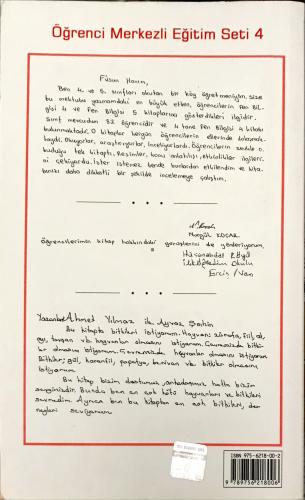 Öğrenci Merkezli Eğitim Seti 4
Füsun Hanım,
Ben 4. ve 5. sınıfları okutan bir köy öğretmeniyim, size
bu mektubu yazmamdaki en büyük etken, öğrencilerin Fen Bil-
gisi 4 ve Fen Bilgisi 5 kitaplarına gösterdikleri ilgidir.
Sınıf mevcudum 32 öğrencidir ve 4 tane Fen Bilgisi 4 kitabı
bulunmaktadır. O kitaplar hergün öğrencilerin ellerinde dolanmak-
taydı. Okuyorlar, araştırıyorlar, inceliyorlardı. Öğrencilerin
buduğu tek kitaptı. Resimler, konu anlatılışı, etkinlikler ilgileri-
ni çekiyordu. İster istemez bende bunlardan etkilendim ve kita-
bınızı daha dikkatli bir şekilde incelemeye çalıştım.
Nurgül KOÇAK
Öğrencilerimin kitap hakkındaki görüşlerini de gönderiyorum.
Hasanabdal Köyü
İlköğretim Okulu
Erciş / Van
Yazanlar Ahmet Yılmaz ile Ayvaz Şahin
Bu kitapta bitkileri istiyorum. Hayvanı: zürafa, fil, at,
ay, tavşan vb. hayvanlar olmasını istiyorum. Çevremizde bitki-
ler olmasını istiyorum. Çevremizde hayvanlar olmasını istiyorum.
Bitkiler; gül, karanfil, papatya, kınivan vb. bitkiler olmasını
istiyorum.
Bu kitap bizim dostumuz, arkadaşımız hatta bizim
sevgimizdir. Bunda ben en kötü hayvanları ve bitkileri
sevmedim. Ayrıca ben bu kitaptan en çok bitkileri, de-
neyleri seviyorum.
ISBN 975-6218-00-2
9 789756 218006